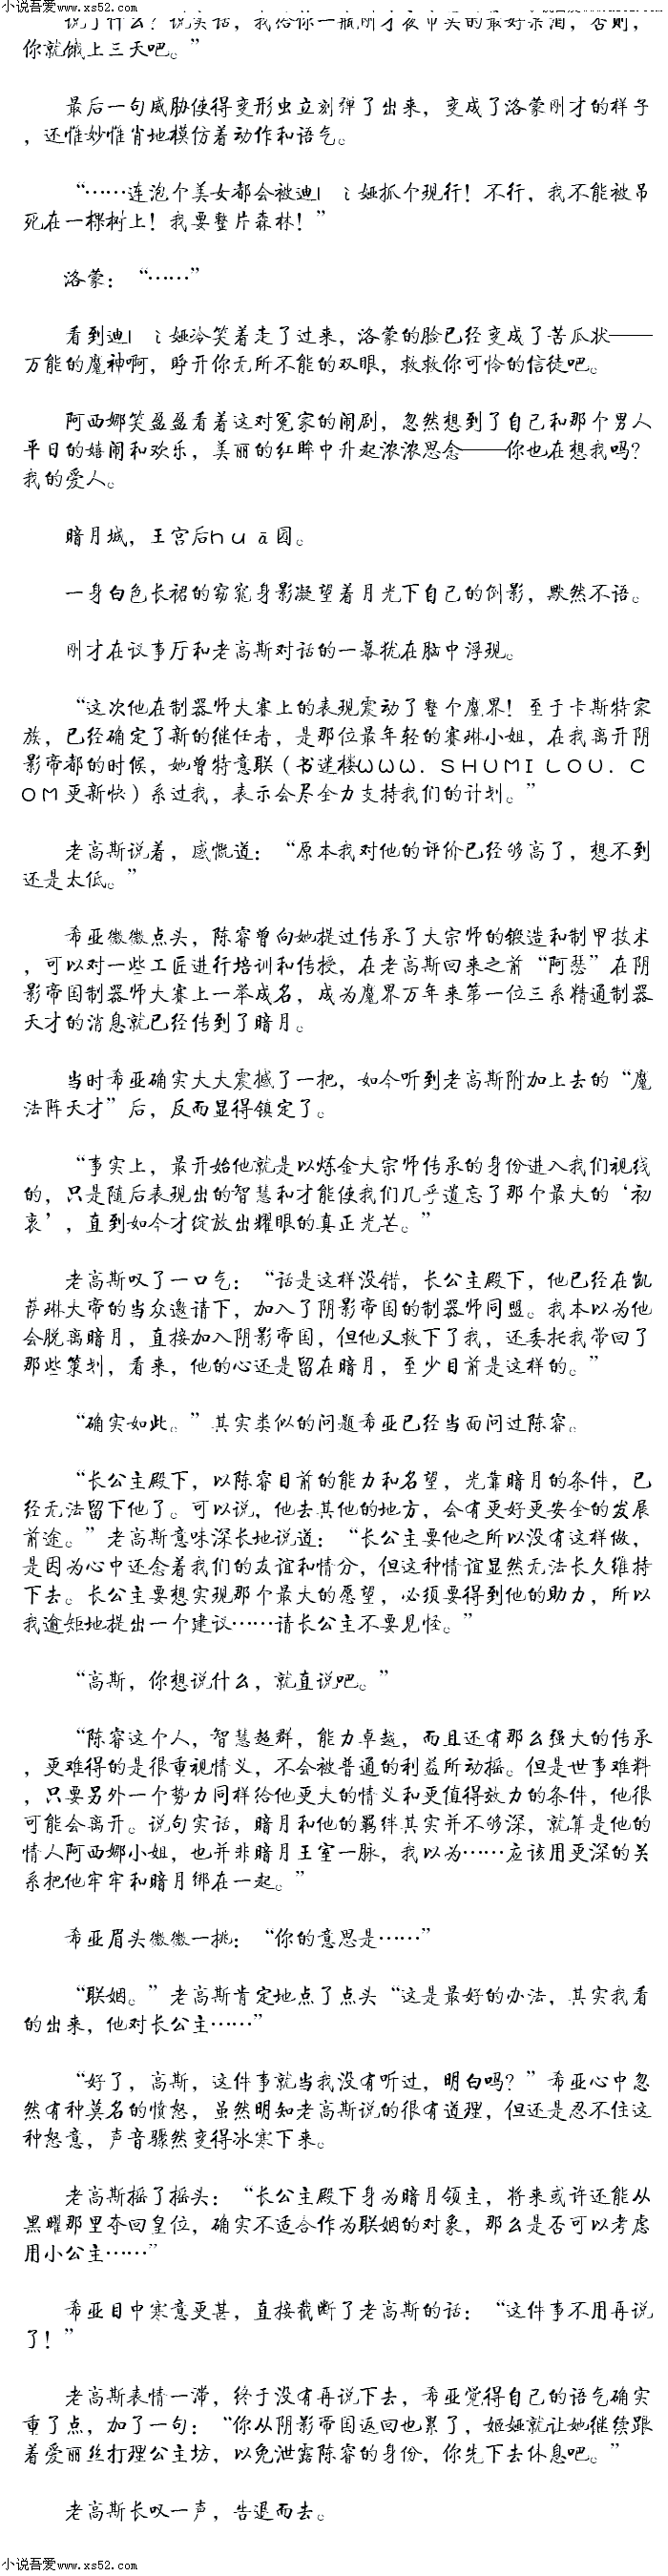 小说吾爱www.xs52.com
说了什么？说实话，我给你一瓶刚才夜市买的最好果酒，否则，
你就饿上三天吧。”
最后一句威胁使得变形虫立刻弹了出来，变成了洛蒙刚才的样子
，还惟妙惟肖地模仿着动作和语气。
“……连泡个美女都会被迪lㄟ娅抓个现行！不行，我不能被吊
死在一棵树上！我要整片森林！”
洛蒙：“……”
看到迪lㄟ娅冷笑着走了过来，洛蒙的脸已经变成了苦瓜状——
万能的魔神啊，睁开你无所不能的双眼，救救你可怜的信徒吧。
阿西娜笑盈盈看着这对冤家的闹剧，忽然想到了自己和那个男人
平日的嬉闹和欢乐，美丽的红眸中升起浓浓思念——你也在想我吗？
我的爱人。
暗月城，王宫后ｈｕā园。
一身白色长裙的窈窕身影凝望着月光下自己的倒影，默然不语。
刚才在议事厅和老高斯对话的一幕犹在脑中浮现。
“这次他在制器师大赛上的表现震动了整个魔界！至于卡斯特家
族，已经确定了新的继任者，是那位最年轻的赛琳小姐，在我离开阴
影帝都的时候，她曾特意联（书迷楼ＷＷＷ．ＳＨＵＭＩＬＯＵ．Ｃ
ＯＭ更新快）系过我，表示会尽全力支持我们的计划。”
老高斯说着，感慨道：“原本我对他的评价已经够高了，想不到
还是太低。”
希亚微微点头，陈睿曾向她提过传承了大宗师的锻造和制甲技术
，可以对一些工匠进行培训和传授，在老高斯回来之前“阿瑟”在阴
影帝国制器师大赛上一举成名，成为魔界万年来第一位三系精通制器
天才的消息就已经传到了暗月。
当时希亚确实大大震撼了一把，如今听到老高斯附加上去的“魔
法阵天才”后，反而显得镇定了。
“事实上，最开始他就是以炼金大宗师传承的身份进入我们视线
的，只是随后表现出的智慧和才能使我们几乎遗忘了那个最大的‘初
衷’，直到如今才绽放出耀眼的真正光芒。”
老高斯叹了一口气：“话是这样没错，长公主殿下，他已经在凯
萨琳大帝的当众邀请下，加入了阴影帝国的制器师同盟。我本以为他
会脱离暗月，直接加入阴影帝国，但他又救下了我，还委托我带回了
那些策划，看来，他的心还是留在暗月，至少目前是这样的。”
“确实如此。”其实类似的问题希亚已经当面问过陈睿。
“长公主殿下，以陈睿目前的能力和名望，光靠暗月的条件，已
经无法留下他了。可以说，他去其他的地方，会有更好更安全的发展
前途。”老高斯意味深长地说道：“长公主要他之所以没有这样做，
是因为心中还念着我们的友谊和情分，但这种情谊显然无法长久维持
下去。长公主要想实现那个最大的愿望，必须要得到他的助力，所以
我逾矩地提出一个建议……请长公主不要见怪。”
“高斯，你想说什么，就直说吧。”
“陈睿这个人，智慧超群，能力卓越，而且还有那么强大的传承
，更难得的是很重视情义，不会被普通的利益所动摇。但是世事难料
，只要另外一个势力同样给他更大的情义和更值得效力的条件，他很
可能会离开。说句实话，暗月和他的羁绊其实并不够深，就算是他的
情人阿西娜小姐，也并非暗月王室一脉，我以为……应该用更深的关
系把他牢牢和暗月绑在一起。”
希亚眉头微微一挑：“你的意思是……”
“联姻。”老高斯肯定地点了点头“这是最好的办法，其实我看
的出来，他对长公主……”
“好了，高斯，这件事就当我没有听过，明白吗？”希亚心中忽
然有种莫名的愤怒，虽然明知老高斯说的很有道理，但还是忍不住这
种怒意，声音骤然变得冰寒下来。
老高斯摇了摇头：“长公主殿下身为暗月领主，将来或许还能从
黑曜那里夺回皇位，确实不适合作为联姻的对象，那么是否可以考虑
用小公主……”
希亚目中寒意更甚，直接截断了老高斯的话：“这件事不用再说
了！”
老高斯表情一滞，终于没有再说下去，希亚觉得自己的语气确实
重了点，加了一句：“你从阴影帝国返回也累了，姬娅就让她继续跟
着爱丽丝打理公主坊，以免泄露陈睿的身份，你先下去休息吧。”
老高斯长叹一声，告退而去。
小说吾爱www.xs52.com